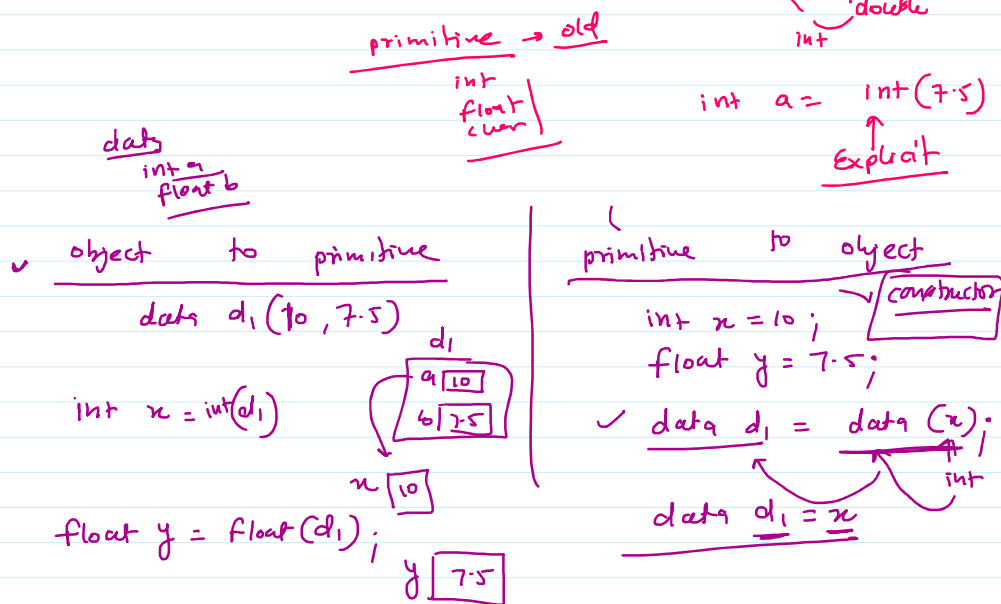 double
int
primitive → old
int
float
char
int a = int(7.5)
Explicit
data
int a
float b
✓ object to primitive
data d1(10, 7.5)
d1
a 10
b 7.5
int x = int(d1)
x 10
float y = float(d1);
y 7.5
primitive to object
constructor
int x = 10;
float y = 7.5;
✓ data d1 = data(x);
int
data d1 = x